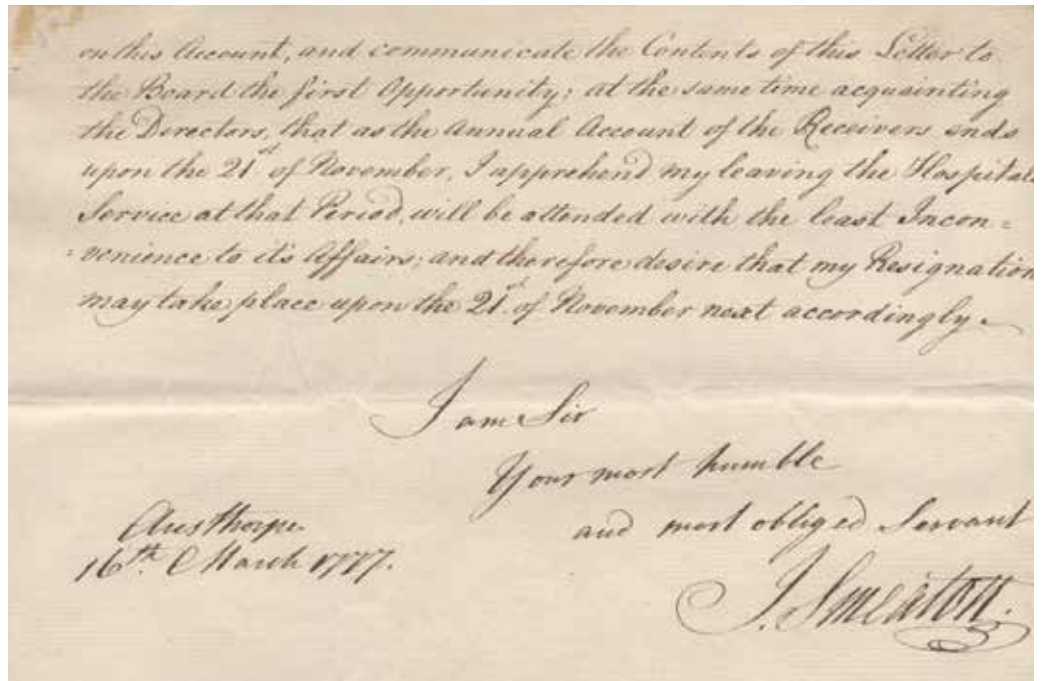 on this Account, and communicate the Contents of this Letter to
the Board the first Opportunity; at the same time acquainting
the Directors, that as the Annual Account of the Receivers ends
upon the 21st of November, I apprehend my leaving the Hospitals
Service at that Period, will be attended with the least Incon=
=venience to it's Affairs; and therefore desire that my Resignation
may take place upon the 21st of November next accordingly.
I am Sir
Your most humble
and most obliged Servant
Austhorpe
16th March 1777.
J. Smeaton.